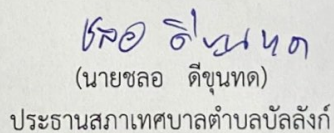 ชลอ ดีขุนทด
(นายชลอ ดีขุนทด)
ประธานสภาเทศบาลตำบลบัลลังก์